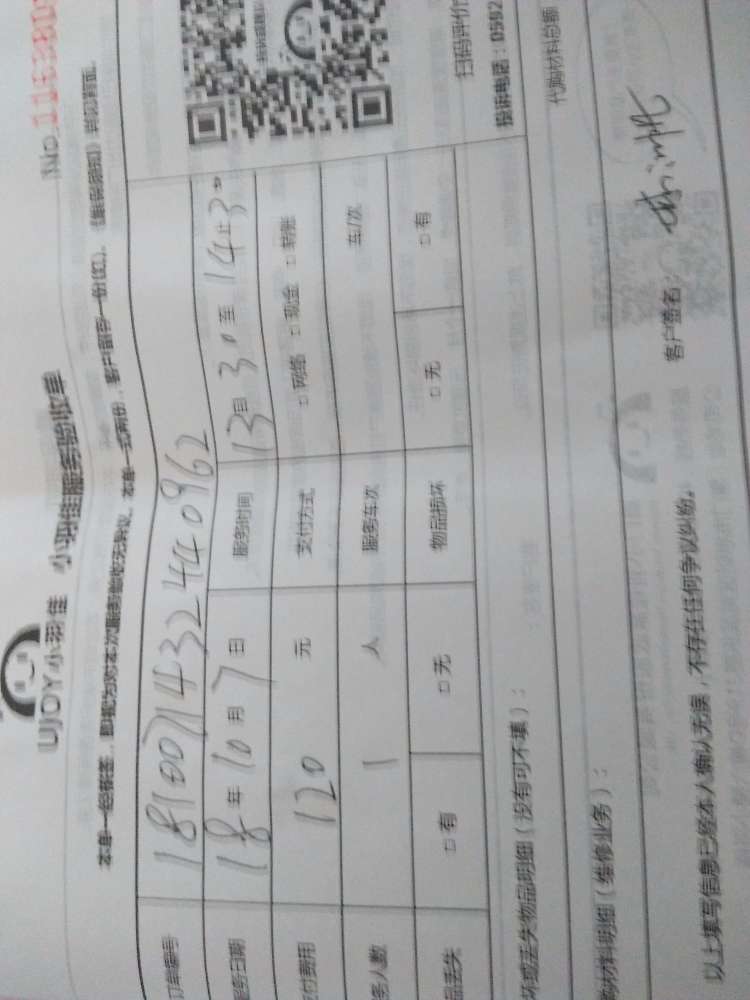 No.115380
扫码评价
投诉电话：0592
UJOY小羽佳 小羽佳服务验收单
本单一经签签，即视为对本次服务验收无异议。本单一式两份，客户留存一份(红)。《售保须知》详见背面。
订单编号 1810071432440962
服务日期 18年10月7日 服务时间 13时30至14时30
支付费用 120 元 支付方式 □网络 □现金 □转账
服务人数 1 人 服务车次 车/次
品丢失 □有 □无 物品损坏 □无 □有
坏或丢失物品明细（没有可不填）：
购材料明细（维修业务）： 代购材料总额
以上填写信息已经本人确认无误，不存在任何争议纠纷。 客户签名：